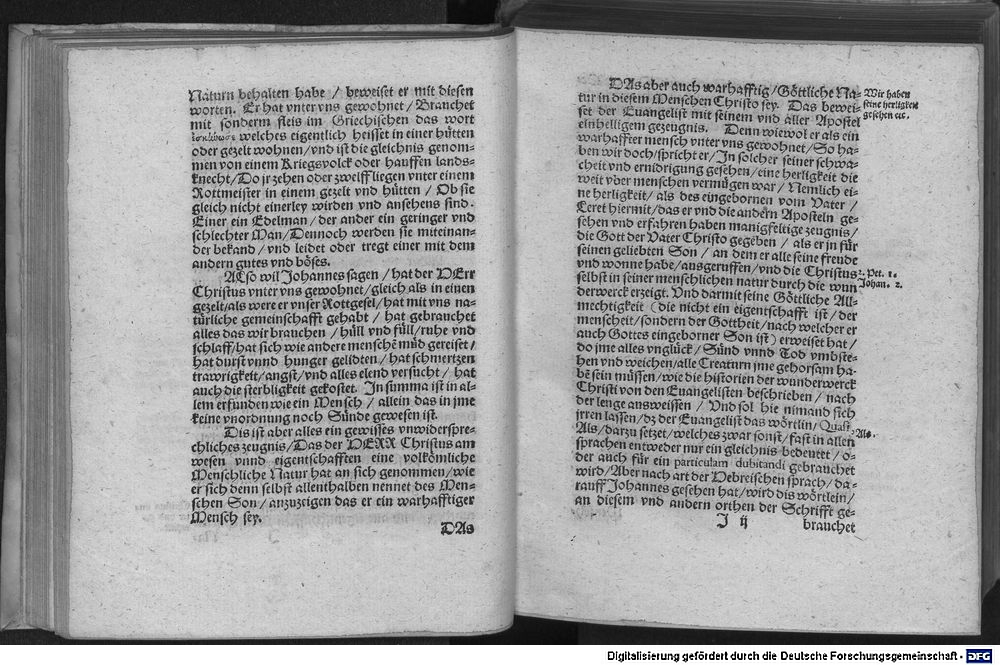 Naturn behalten habe / beweiset er mit diesen
worten. Er hat vnter vns gewohnet / Brauchet
mit sonderm fleis im Griechischen das wort
ἐσκήνωσε welches eigentlich heisset in einer hütten
oder gezelt wohnen / vnd ist die gleichnis genom-
men von einem Kriegsvolck oder hauffen lands-
knecht / Do jr zehen oder zwelff liegen vnter einem
Rottmeister in einem gezelt vnd hütten / Ob sie
gleich nicht einerley wirden vnd ansehens sind.
Einer ein Edelman / der ander ein geringer vnd
schlechter Man / Dennoch werden sie miteinan-
der bekand / vnd leidet oder tregt einer mit dem
andern gutes vnd böses.
Also wil Johannes sagen / hat der HErr
Christus vnter vns gewohnet / gleich als in einen
gezelt / als were er vnser Rottgesel / hat mit vns na-
türliche gemeinschafft gehabt / hat gebrauchet
alles das wir brauchen / hüll vnd füll / ruhe vnd
schlaff / hat sich wie andere menschē müd gereiset /
hat durst vnnd hunger gelidten / hat schmertzen
trawrigkeit / angst / vnd alles elend versucht / hat
auch die sterbligkeit gekostet. In summa ist in al-
lem erfunden wie ein Mensch / allein das in jme
keine vnordnung noch Sünde gewesen ist.
Dis ist aber alles ein gewisses vnwiderspre-
chliches zeugnis / Das der HERR Christus am
wesen vnnd eigenschafften eine volkömliche
Menschliche Natur hat an sich genommen / wie
er sich denn selbst allenthalben nennet des Men-
schen Son / anzuzeigen das er ein warhafftiger
Mensch sey.
DAs
DAs aber auch warhafftig / Göttliche Na-
tur in diesem Menschen Christo sey. Das bewei-
set der Euangelist mit seinem vnd aller Apostel
einhelligem gezeugnis. Denn wiewol er als ein
warhaffter mensch vnter vns gewohnet / So ha-
ben wir doch / spricht er / In solcher seiner schwa-
cheit vnd ernidrigung gesehen / eine herligkeit die
weit vber menschen vermügen war / Nemlich ei-
ne herligkeit / als des eingebornen vom Vater /
Leret hiermit / das er vnd die andern Aposteln ge-
sehen vnd erfahren haben manigfeltige zeugnis /
die Gott der Vater Christo gegeben / als er jn für
seinen geliebten Son / an dem er alle seine freude
vnd wonne habe / ausgeruffen / vnd die Christus
selbst in seiner menschlichen natur durch die wun
derwerck erzeigt. Vnd darmit seine Göttliche All-
mechtigkeit (die nicht ein eigenschafft ist / der
menscheit / sondern der Gottheit / nach welcher er
auch Gottes eingeborner Son ist) erweiset hat /
do jme alles vnglück / Sünd vnnd Tod vmbste-
hen vnd weichen / alle Creaturn jme gehorsam ha-
bē sein müssen / wie die historien der wunderwerck
Christi von den Euangelisten beschrieben / nach
der lenge ausweissen / Vnd sol hie nimand sich
jrren lassen / dz der Euangelist das wörtlin / Quasi,
Als / darzu setzet / welches zwar sonst / fast in allen
sprachen entweder nur ein gleichnis bedeutet / o-
der auch für ein particulam dubitandi gebrauchet
wird / Aber nach art der Hebreischen sprach / da-
rauff Johannes gesehen hat / wird dis wörtlein /
an diesem vnd andern orthen der Schrifft ge-
J ij brauchet
Wir haben
seine herligkeit
gesehen etc.
2. Pet. 1.
Johan. 2.
Als.
Digitalisierung gefördert durch die Deutsche Forschungsgemeinschaft - DFG